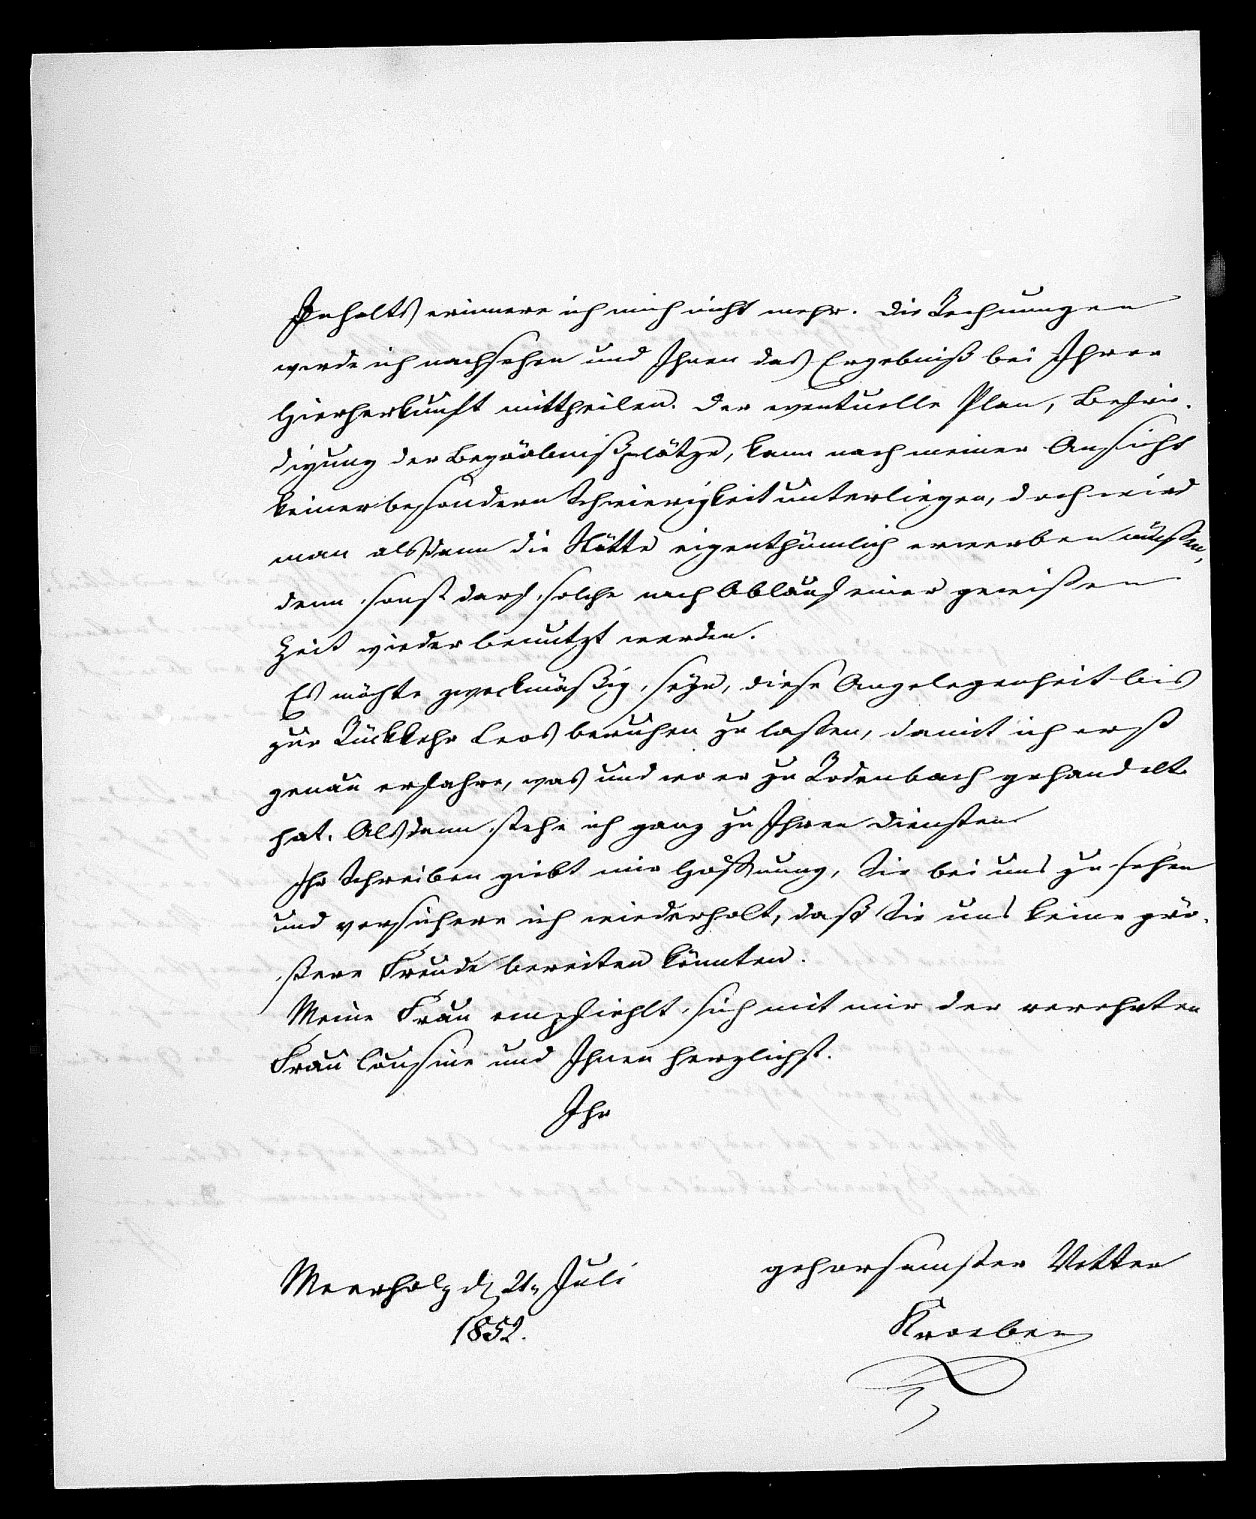 Inhalts erinnere ich mich nicht mehr. Die Rechnungen
werde ich nachsehen und Ihnen das Ergebniß bei Ihrer
Hierherkunft mittheilen. Der eventuelle Plan, Befrie-
digung der Begräbnißplätze, kann nach meiner Ansicht
keiner besondern Schwierigkeit unterliegen, doch wird
man alsdann die Stätte eigenthümlich erwerben müßen,
denn sonst darf solche nach Ablauf einer gewißen
Zeit wieder benutzt werden.
Es möchte zweckmäßig seyn, diese Angelegenheit bis
zur Rückkehr Leos beruhen zu laßen, damit ich erst
genau erfahre, was und wo er zu Rodenbach gehandelt
hat. Alsdann stehe ich ganz zu Ihren Diensten
Ihr Schreiben giebt mir Hoffnung, Sie bei uns zu sehen
und versichere ich wiederholt, daß Sie uns keine grö-
ßere Freude bereiten könnten.
Meine Frau empfiehlt sich mit mir der verehrten
Frau Cousine und Ihnen herzlichst.
Ihr
gehorsamster Vetter
Meerholz d. 21n Juli
Kroeber
1852.